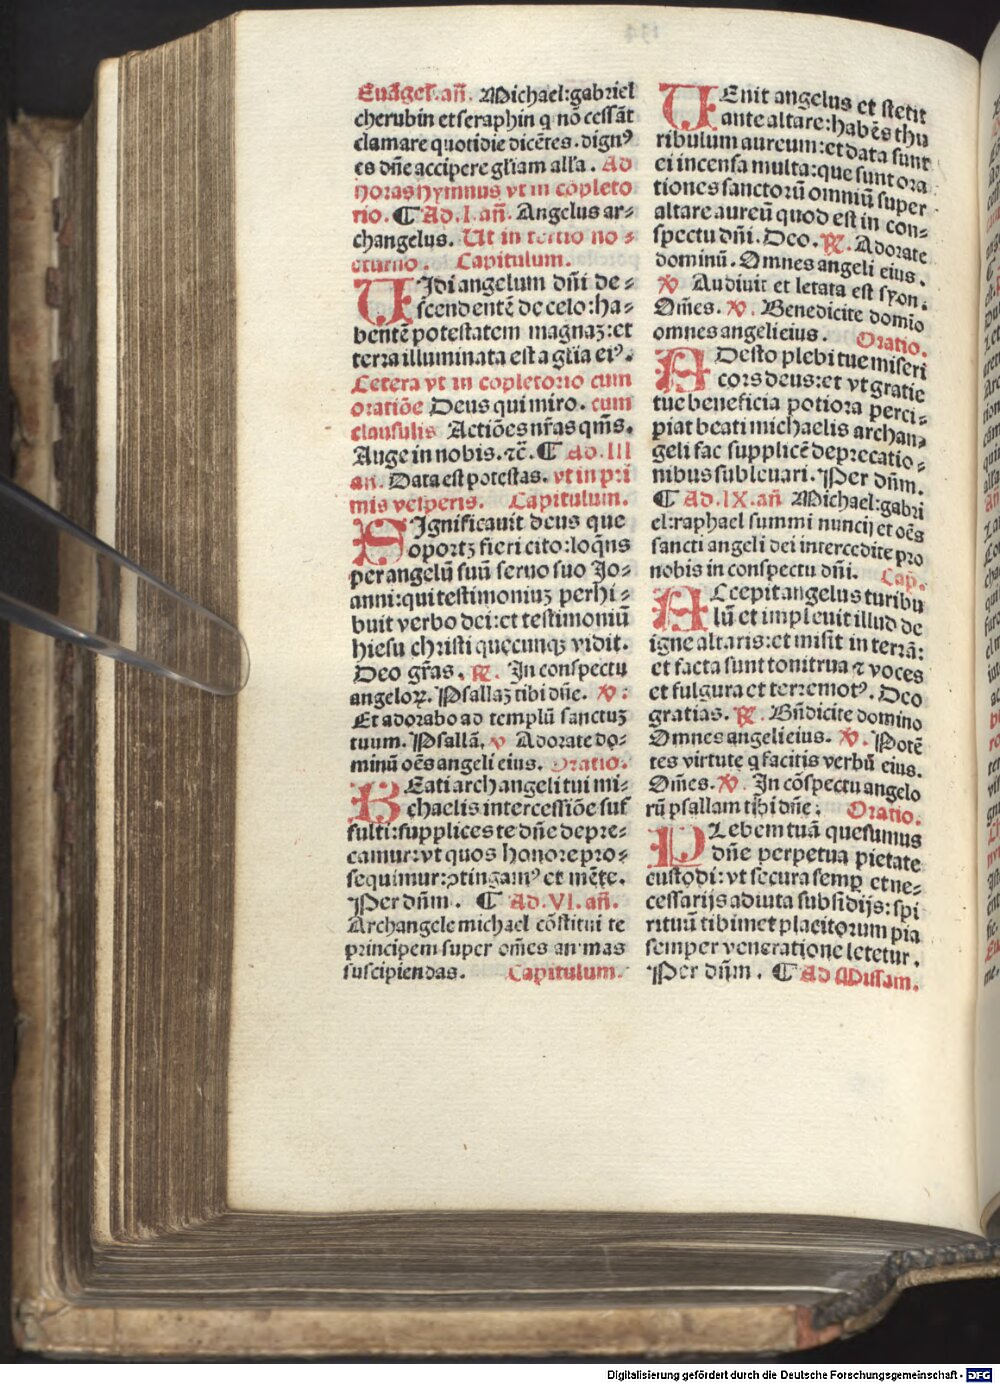 Euãgel.añ. Michael:gabriel
cherubin et seraphin q nõ cessãt
clamare quotidie dicẽtes. dignꝰ
es dñe accipere gliam alla. Ad
horas hymnus vt in cõpleto
rio. ¶ Ad.I.añ. Angelus ar⸗
changelus. Ut in tertio no⸗
cturno. Capitulum.
UIdi angelum dñi de⸗
scendentẽ de celo:ha⸗
bentẽ potestatem magnaꝫ:et
terra illuminata est a glia eiꝰ.
Cetera vt in cõpletorio cum
oratiõe Deus qui miro. cum
clausulis Actiões nr̃as qm̃s.
Auge in nobis.⁊c̃.¶ Ad.III
an. Data est potestas. vt in pri
mis vesperis. Capitulum.
SIgnificauit deus que
oportꝫ fieri cito:loqñs
per angelũ suũ seruo suo Jo⸗
anni:qui testimoniuꝫ perhi⸗
buit verbo dei:et testimoniũ
hiesu christi quecunqꝫ vidit.
Deo gr̃as. ℟. In conspectu
angeloꝝ. Psallaꝫ tibi dñe. ℣:
Et adorabo ad templũ sanctuꝫ
tuum. Psallã. ℣ Adorate do⸗
minũ oẽs angeli eius. Oratio.
BEati archangeli tui mi⸗
chaelis intercessiõe suf
fulti:supplices te dñe depre⸗
camur:vt quos honore pro⸗
sequimur:ↄtingamꝰ et mẽte.
Per dñm. ¶ Ad.VI.añ.
Archangele michael cõstitui te
principem super om̃es animas
suscipiendas. Capitulum.
UEnit angelus et stetit
ante altare:habẽs thu
ribulum aureum:et data sunt
ei incensa multa:que sunt ora
tiones sanctorũ omniũ super
altare aureũ quod est in con⸗
spectu dñi. Deo. ℟. Adorate
dominũ. Omnes angeli eius.
℣ Audiuit et letata est syon.
Om̃es. ℣. Benedicite domĩo
omnes angeli eius. Oratio.
ADesto plebi tue miseri
cors deus:et vt gratie
tue beneficia potiora perci⸗
piat beati michaelis archan⸗
geli fac supplicẽ deprecatio⸗
nibus subleuari. Per dñm.
¶ Ad.IX.añ Michael:gabri
el:raphael summi nuncij et oẽs
sancti angeli dei intercedite pro
nobis in conspectu dñi. Cap.
ACcepit angelus turibu
lũ et impleuit illud de
igne altaris:et misit in terrã:
et facta sunt tonitrua ⁊ voces
et fulgura et terremotꝰ. Deo
gratias. ℟. Bñdicite domino
Omnes angeli eius. ℣. Potẽ
tes virtute q facitis verbũ eius.
Om̃es. ℣. In cõspectu angelo
rũ psallam tibi dñe. Oratio.
PLebem tuã quesumus
dñe perpetua pietate
custodi:vt secura semp̱ et ne⸗
cessarijs adiuta subsidijs:spi
rituũ tibimet placitorum pia
semper veneratione letetur.
Per dñm. ¶ Ad Missam.
Digitalisierung gefördert durch die Deutsche Forschungsgemeinschaft - DFG